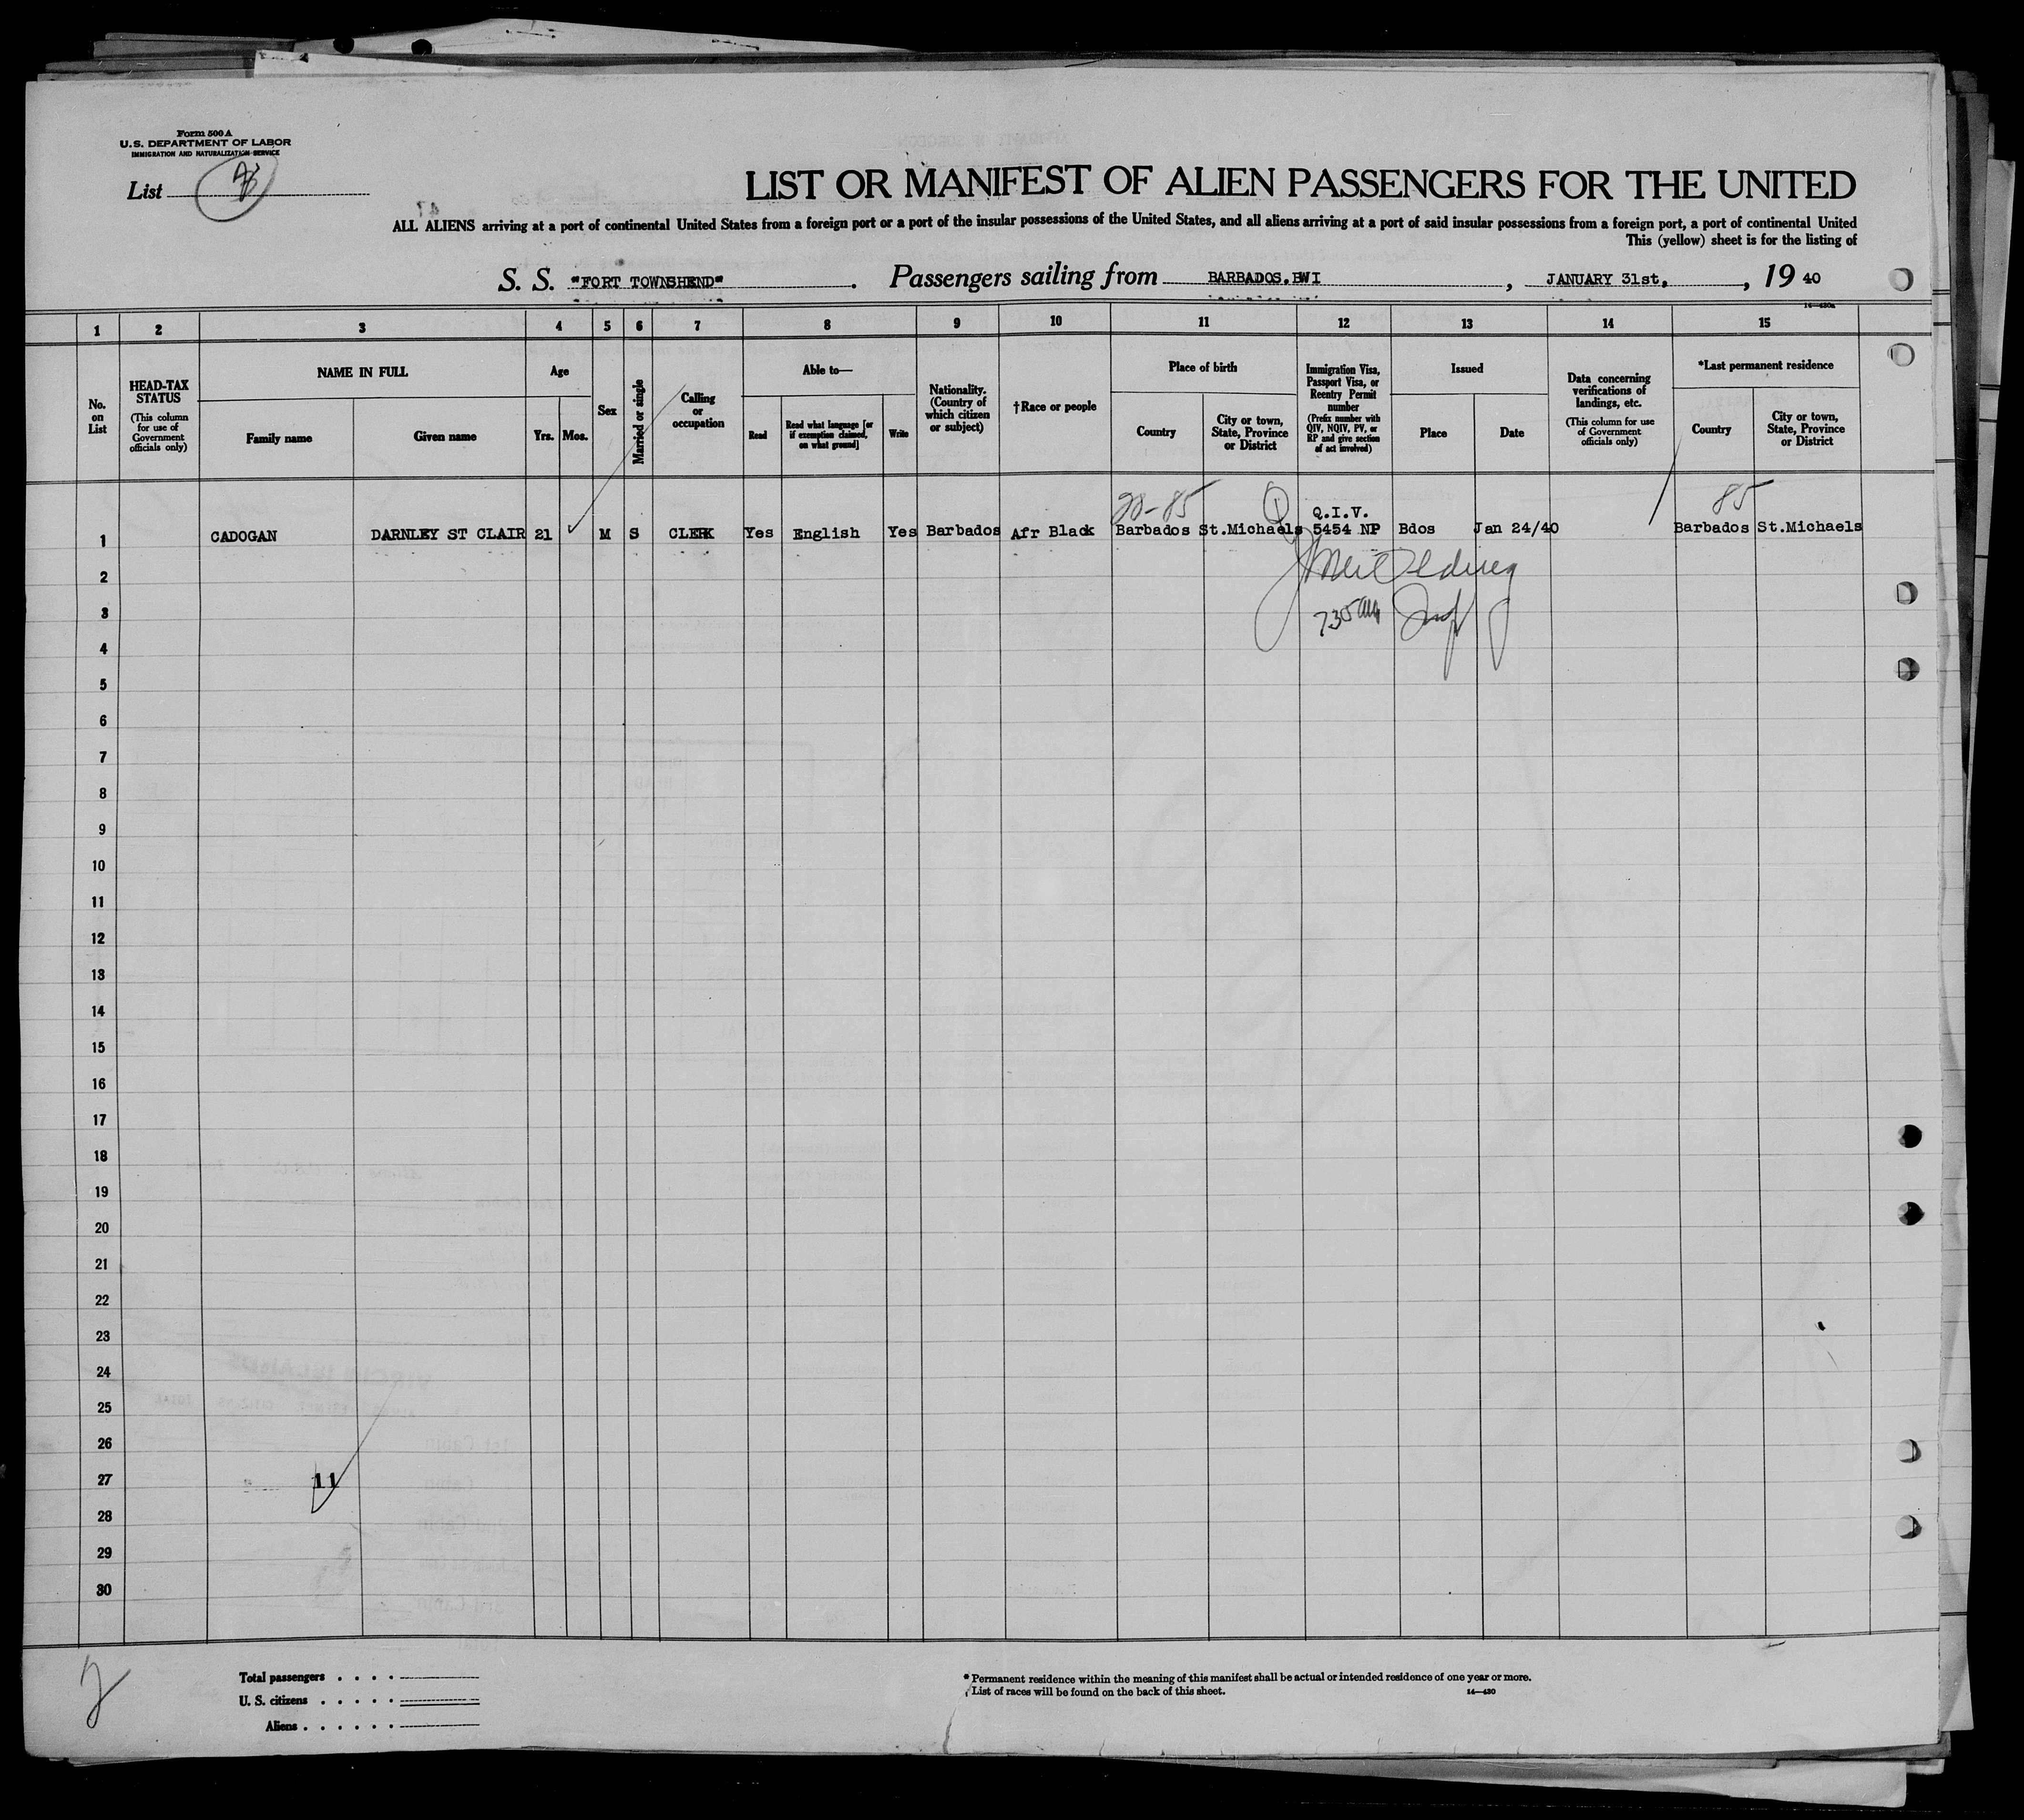 Form 500 A
U.S. DEPARTMENT OF LABOR
IMMIGRATION AND NATURALIZATION SERVICE
List
LIST OR MANIFEST OF ALIEN PASSENGERS FOR THE UNITED
ALL ALIENS arriving at a port of continental United States from a foreign port or a port of the insular possessions of the United States, and all aliens arriving at a port of said insular possessions from a foreign port, a port of continental United
This (yellow) sheet is for the listing of
S. S. "FORT TOWNSHEND". Passengers sailing from BARBADOS.BWI, JANUARY 31st, , 19 40
14—430a
1 2 3 4 5 6 7 8 9 10 11 12 13 14 15
No. on List
HEAD-TAX STATUS
(This column for use of Government officials only)
NAME IN FULL
Family name
Given name
Age
Yrs.
Mos.
Sex
Married or single
Calling or occupation
Able to—
Read
Read what language [or if exemption claimed, on what ground]
Write
Nationality. (Country of which citizen or subject)
†Race or people
Place of birth
Country
City or town, State, Province or District
Immigration Visa, Passport Visa, or Reentry Permit number
(Prefix number with QIV, NQIV, PV, or RP and give section of act involved)
Issued
Place
Date
Data concerning verifications of landings, etc.
(This column for use of Government officials only)
*Last permanent residence
Country
City or town, State, Province or District
28-85 Q Q.I.V. 85
1 CADOGAN DARNLEY ST CLAIR 21 M S CLERK Yes English Yes Barbados Afr Black Barbados St.Michaels 5454 NP Bdos Jan 24/40 Barbados St.Michaels
2
3
4
5
6
7
8
9
10
11
12
13
14
15
16
17
18
19
20
21
22
23
24
25
26
27 11
28
29
30
Total passengers . . . .
U. S. citizens . . . . .
Aliens . . . . . .
* Permanent residence within the meaning of this manifest shall be actual or intended residence of one year or more.
List of races will be found on the back of this sheet.
14—430